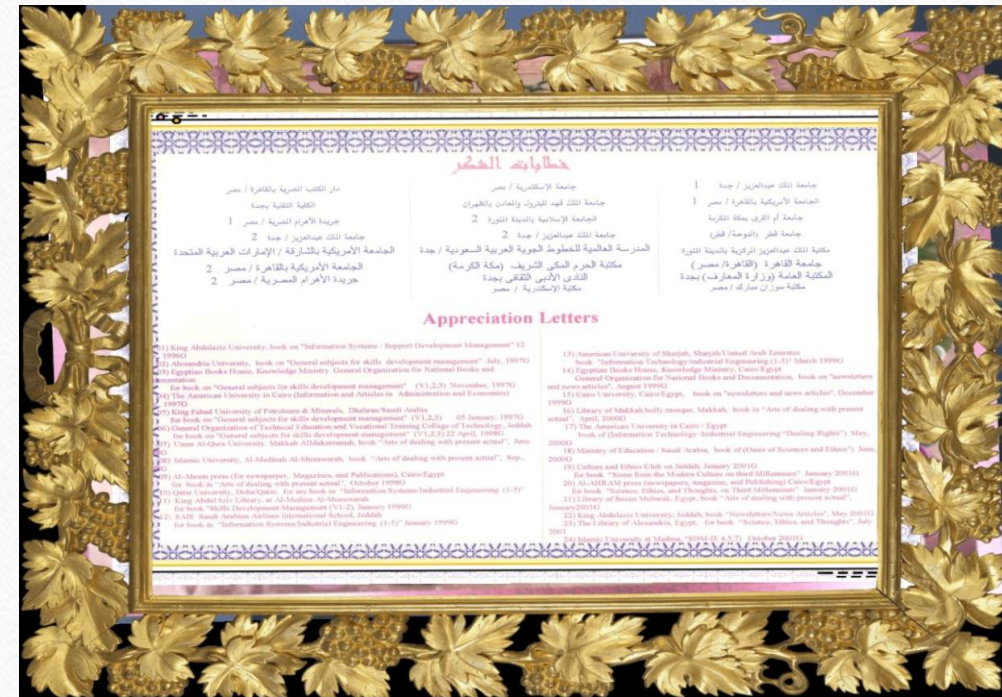 خطابات الشكر
جامعة الملك عبدالعزيز / جدة 1
الجامعة الأمريكية بالقاهرة / مصر 1
جامعة أم القرى بمكة المكرمة
جامعة قطر (الدوحة/ قطر)
مكتبة الملك عبدالعزيز المركزية بالمدينة المنورة
جامعة القاهرة (القاهرة/ مصر)
المكتبة العامة (وزارة المعارف) بجدة
مكتبة سوزان مبارك / مصر
جامعة الإسكندرية / مصر
جامعة الملك فهد للبترول والمعادن بالظهران
الجامعة الإسلامية بالمدينة المنورة 2
جامعة الملك عبدالعزيز / جدة 2
المدرسة العالمية للخطوط الجوية العربية السعودية / جدة
مكتبة الحرم المكى الشريف (مكة الكرمة)
النادى الأدبى الثقافى بجدة
مكتبة الإسكندرية / مصر
دار الكتب المصرية بالقاهرة / مصر
الكلية التقنية بجدة
جريدة الأهرام المصرية / مصر 1
جامعة الملك عبدالعزيز / جدة 2
الجامعة الأمريكية بالشارقة / الإمارات العربية المتحدة
الجامعة الأمريكية بالقاهرة / مصر 2
جريدة الأهرام المصرية / مصر 2
Appreciation Letters
01) King Abdulaziz University, book on "Information Systems / Support Development Management" 12
1996G
02) Alexandria University, book on "General subjects for skills development management" July, 1997G
03) Egyptian Books House, Knowledge Ministry General Organization for National Books and
for book on "General subjects for skills development management" (V1,2,3) November, 1997G
04) The American University in Cairo (Information and Articles in Administration and Economics)
1997G
05) King Fahad University of Petroleum & Minerals, Dhahran/Saudi Arabia
for book on "General subjects for skills development management" (V1,2,3) 05 January, 1997G
06) General Organization of Technical Education and Vocational Training College of Technology, Jeddah
for book on "General subjects for skills development management" (V1,2,3) 22 April, 1998G
07) Umm Al-Qura University, Makkah AlMukarramah, book "Arts of dealing with present actual", June
08) Islamic University, Al-Medinah Al-Munawarah, book "Arts of dealing with present actual", Sep.,
09) Al-Ahram press (for newspaper, Magazines, and Publications), Cairo/Egypt
for book in "Arts of dealing with present actual", October 1998G
10) Qatar University, Doha/Qatar, for my book in "Information Systems/Industrial Engineering (1-5)"
11) King AbdulAziz Library, at Al-Medina Al-Munawarah
for book "Skills Development Management (V1-2), January 1999G
12) SAIS Saudi Arabian Airlines International School, Jeddah
for book in "Information Systems/Industrial Engineering (1-5)" January 1999G
13) American University of Sharjah, Sharjah/United Arab Emirates
book "Information Technology/industrial Engineering (1-5)" March 1999G
14) Egyptian Books House, Knowledge Ministry, Cairo/Egypt
General Organization for National Books and Documentation, book on "newsletters
and news articles", August 1999G
15) Cairo University, Cairo/Egypt, book on "newsletters and news articles", December
1999G
16) Library of Makkah holly mosque, Makkah, book in "Arts of dealing with present
actual", April, 2000G
17) The American University in Cairo / Egypt
book of (Information Technology /Industrial Engineering "Dealing Rights") May,
2000G
18) Ministry of Education / Saudi Arabia, book of (Oasis of Sciences and Ethics") June,
2000G
19) Culture and Ethics Club on Jeddah, January 2001G
for book "Some from the Modern Culture on third Millennium" January 2001G
20) Al-AHRAM press (newspapers, magazine, and Publishing) Cairo/Egypt
for book "Science, Ethics, and Thoughts, on Third Millennium" January 2001G
21) Library of Suzan Mubarak, Egypt, book "Arts of dealing with present actual",
January2001G
22) King Abdulaziz University, Jeddah, book "Newsletters/News Articles", May 2001G
23) The Library of Alexandria, Egypt, for book "Science, Ethics, and Thoughts", July
2001
24) Islamic University at Medina, "SDM-IE 4,5,7) October 2001G